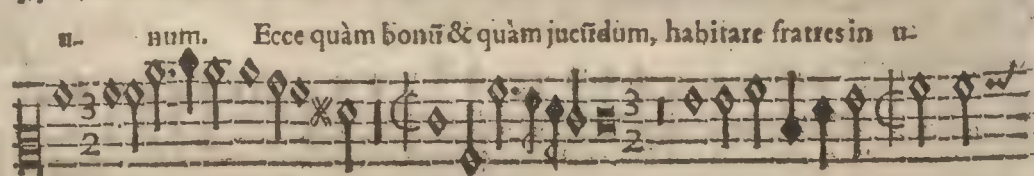 u- num. Ecce quàm bonũ & quàm jucũdum, habitare fratres in u-
3 3
2 2